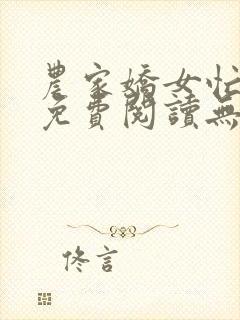 農家嬌女忙
免費閱讀無
佟言